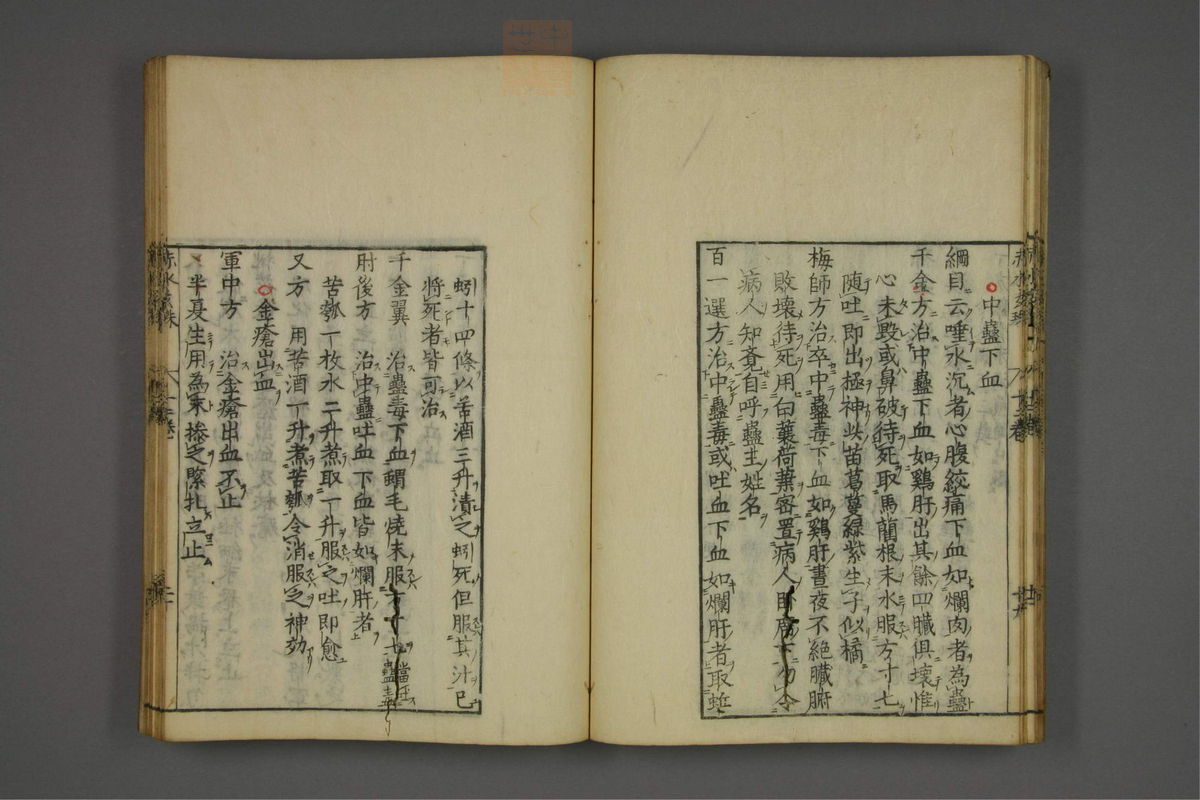 中蠱下血
綱目云唾水沉者心腹絞痛下血如爛肉者為蠱
千金方治中蠱下血如鷄肝出其餘四臟俱壞惟
心未毀或鼻破待死取馬藺根末水服方寸七
随吐即出極神此苗葛蔓緑紫生子似橘
梅師方治卒中蠱毒下血如鷄肝晝夜不絶臟腑
敗壞待死用白蘘荷葉密置病人卧席下勿令
病人知竟自呼蠱主姓名
百一選方治中蠱毒或吐血下血如爛肝者取蚯
蚓十四條以苦酒三升漬之蚓死但服其汁已
將死者皆可治
千金翼 治蠱毒下血蝟毛燒末服方寸七當吐蠱毒
肘後方 治中蠱吐血下血皆如爛肝者
苦瓠一枚水二升煮取一升服之吐即愈
又方 用苦酒一升煮苦瓠令消服之神効
金瘡出血
軍中方 治金瘡出血不止
半夏生用為末摻之緊扎立止
赤水玄珠